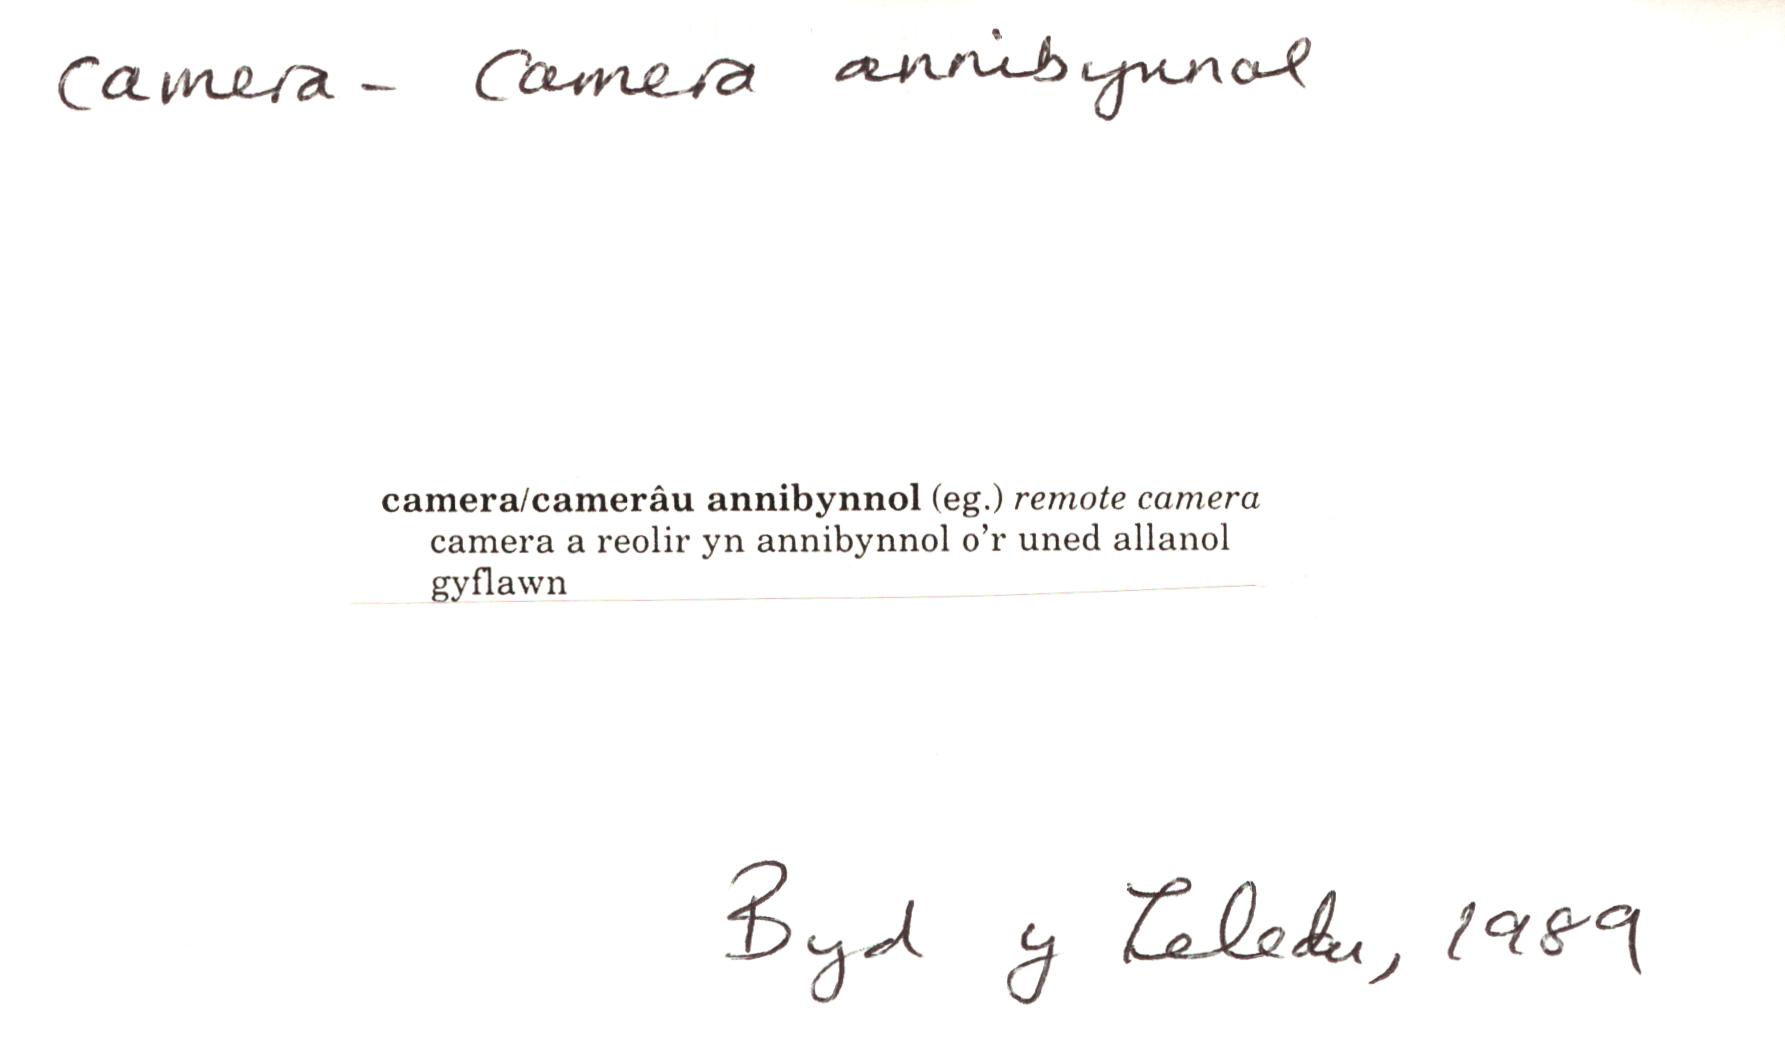 Camera - Camera annibynnol
camera/camerâu annibynnol (eg.) remote camera
camera a reolir yn annibynnol o'r uned allanol
gyflawn
Byd y Teledu, 1989